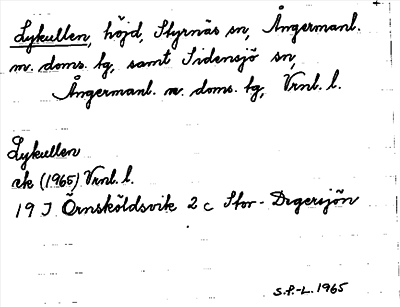 Lykullen, höjd, Styrnäs sn, Ångermanl.
m. doms. tg, samt Sidensjö sn,
Ångermanl. n. doms. tg, Vrnl. l.
Lykullen
ek (1965) Vrnl. l.
19 J Örnsköldsvik 2 c Stor-Degersjön
S.P.-L. 1965